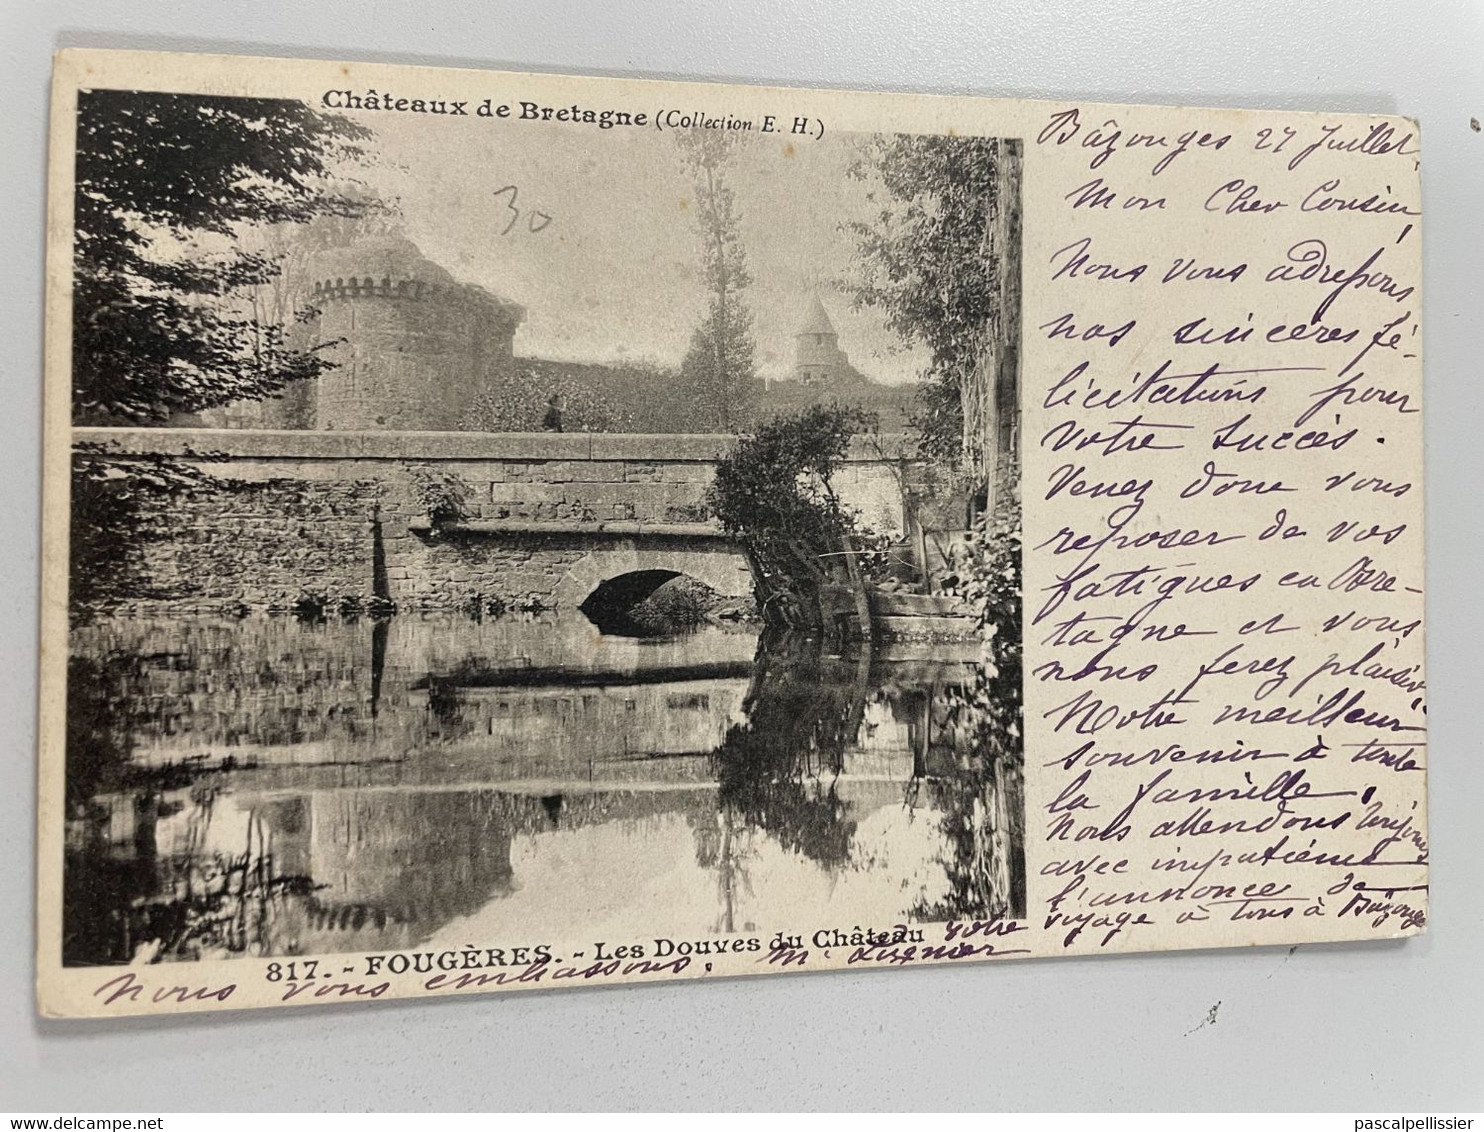 Châteaux de Bretagne (Collection E. H.)
30
Bâzouges 27 Juillet,
Mon Cher Cousin,
Nous vous adressons
nos sincères fé-
licitations pour
votre succès.
Venez donc vous
reposer de vos
fatigues en Bre-
tagne et vous
nous ferez plaisir.
Notre meilleur
souvenir à toute
la famille.
Nous attendons toujours
avec impatience
l'annonce de
voyage à tous à Bâzouges
votre
Nous vous embrassons. M.
817. - FOUGÈRES. - Les Douves du Château
pascalpellissier